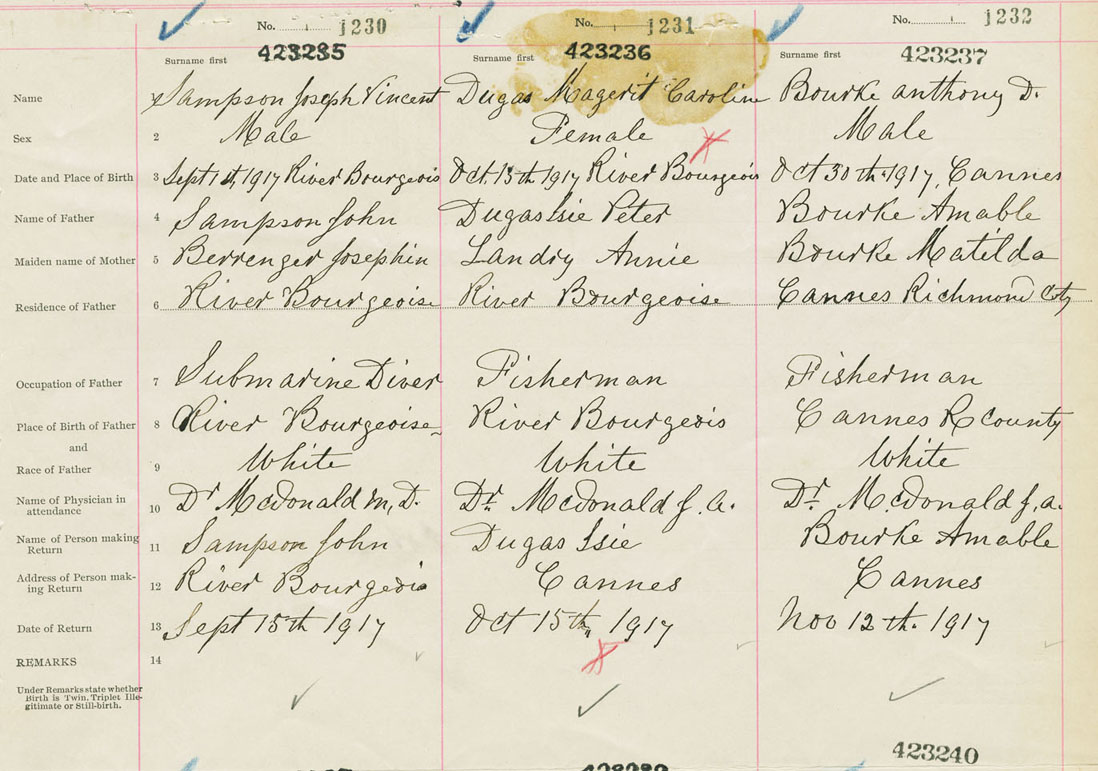 No. 1 1230
No. 1 1231
No. 1 1232
Surname first 423235
Surname first 423236
Surname first 423237
Name Sampson Joseph Vincent Dugas Magerit Caroline Bourke anthony D.
Sex 2 Male Female Male
Date and Place of Birth 3 Sept 1st, 1917 River Bourgeois Oct. 15th 1917 River Bourgeois Oct 30th 1917, Cannes
Name of Father 4 Sampson John Dugas Isie Peter Bourke Amable
Maiden name of Mother 5 Berrenger Josephin Landry Annie Bourke Matilda
Residence of Father 6 River Bourgeoise River Bourgeoise Cannes Richmond Cty
Occupation of Father 7 Submarine Diver Fisherman Fisherman
Place of Birth of Father 8 River Bourgeoise River Bourgeois Cannes R County
and
Race of Father 9 White White White
Name of Physician in
attendance 10 Dr McDonald M, D. Dr. McDonald J. a. Dr. McDonald J, a.
Name of Person making
Return 11 Sampson John Dugas Isie Bourke Amable
Address of Person mak-
ing Return 12 River Bourgeois Cannes Cannes
Date of Return 13 Sept 15th 1917 Oct 15th, 1917 Nov 12th. 1917
REMARKS 14
Under Remarks state whether
Birth is Twin. Triplet Ille-
gitimate or Still-birth.
423240